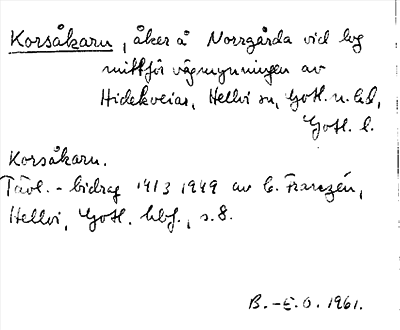 Korsåkarn, åker å Norrgårda vid lvg
mittför vägmynningen av
Hidekveiar, Hellvi sn, Gotl. n. hd,
Gotl. l.
Korsåkarn.
Tävl.-bidrag 14/3 1949 av C. Franzén,
Hellvi, Gotl. hbf., s. 8.
B.-E. O. 1961.